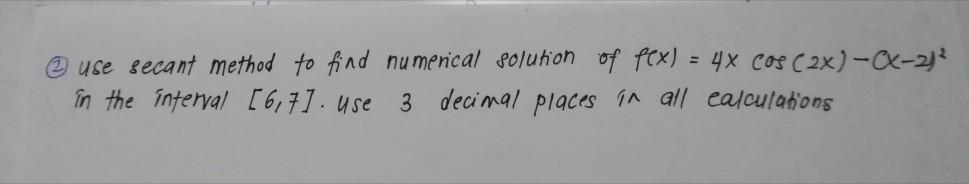 ② use secant method to find numerical solution of f(x) = 4x cos(2x) - (x-2)²
in the interval [6,7]. use 3 decimal places in all calculations